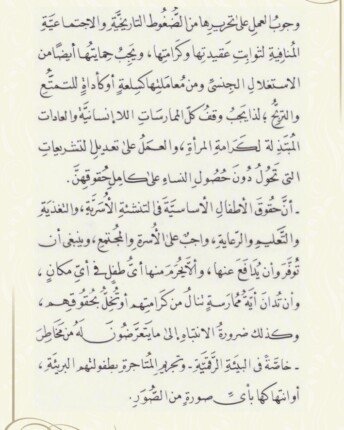 وجوبُ العملِ على تحريرِها من الضُّغُوط التاريخيَّة والاجتماعيَّة
المنافيةِ لثوابتِ عَقيدتِها وكَرامتِها، ويَجِبُ حِمايتُها أيضًا من
الاستغلالِ الجِنسيِّ ومن مُعاملتِها كسِلعةٍ أو كأداةٍ للتمتُّعِ
والتربُّحِ؛ لذا يَجِبُ وقفُ كلِّ الممارَساتِ اللاإنسانيَّة والعادات
المُبتذِلة لكَرامةِ المرأةِ، والعمَلُ على تعديلِ التشريعاتِ
التي تَحُولُ دُونَ حُصُولِ النساءِ على كامِلِ حُقوقِهنَّ.
- أنَّ حُقوقَ الأطفالِ الأساسيَّةَ في التنشئةِ الأُسَريَّةِ، والتغذيةِ
والتَّعليمِ والرِّعايةِ، واجبٌ على الأُسرةِ والمُجتمَعِ، وينبغي أن
تُوفَّرَ وأن يُدافَعَ عنها، وألَّا يُحرَمَ منها أيُّ طفلٍ في أيِّ مكانٍ،
وأن تُدانَ أيَّةُ مُمارسةٍ تنالُ من كَرامتِهم أو تُخِلُّ بحُقُوقِهم،
وكذلك ضرورةُ الانتباهِ إلى ما يَتعرَّضُونَ له من مَخاطِرَ
- خاصَّةً في البيئةِ الرَّقميَّة - وتجريمِ المُتاجرةِ بطفولتِهم البريئةِ،
أو انتهاكها بأيِّ صورةٍ من الصُّوَرِ.